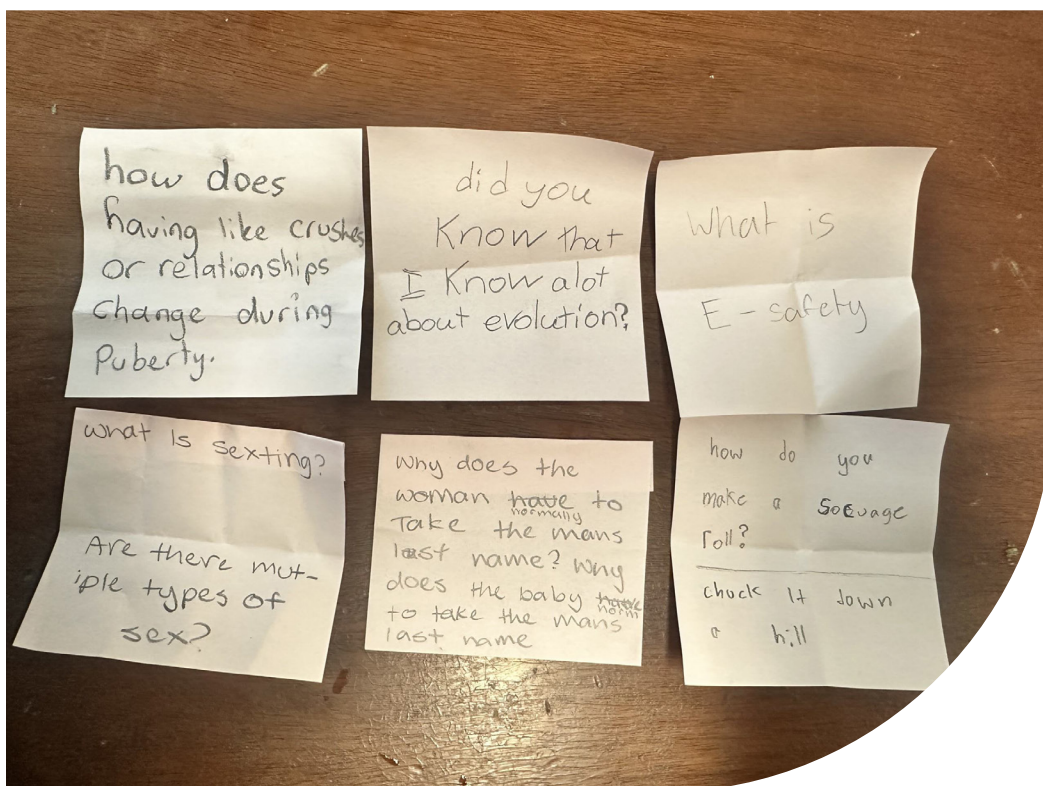 how does
having like crushes
or relationships
change during
Puberty.
did you
Know that
I Know alot
about evolution?
What is
E-safety
what Is sexting?
Are there mut-
iple types of
sex?
Why does the
woman have to
normally
Take the mans
last name? Why
does the baby have
norm
to take the mans
last name
how do you
make a Soevage
roll?
chuck It down
a hill